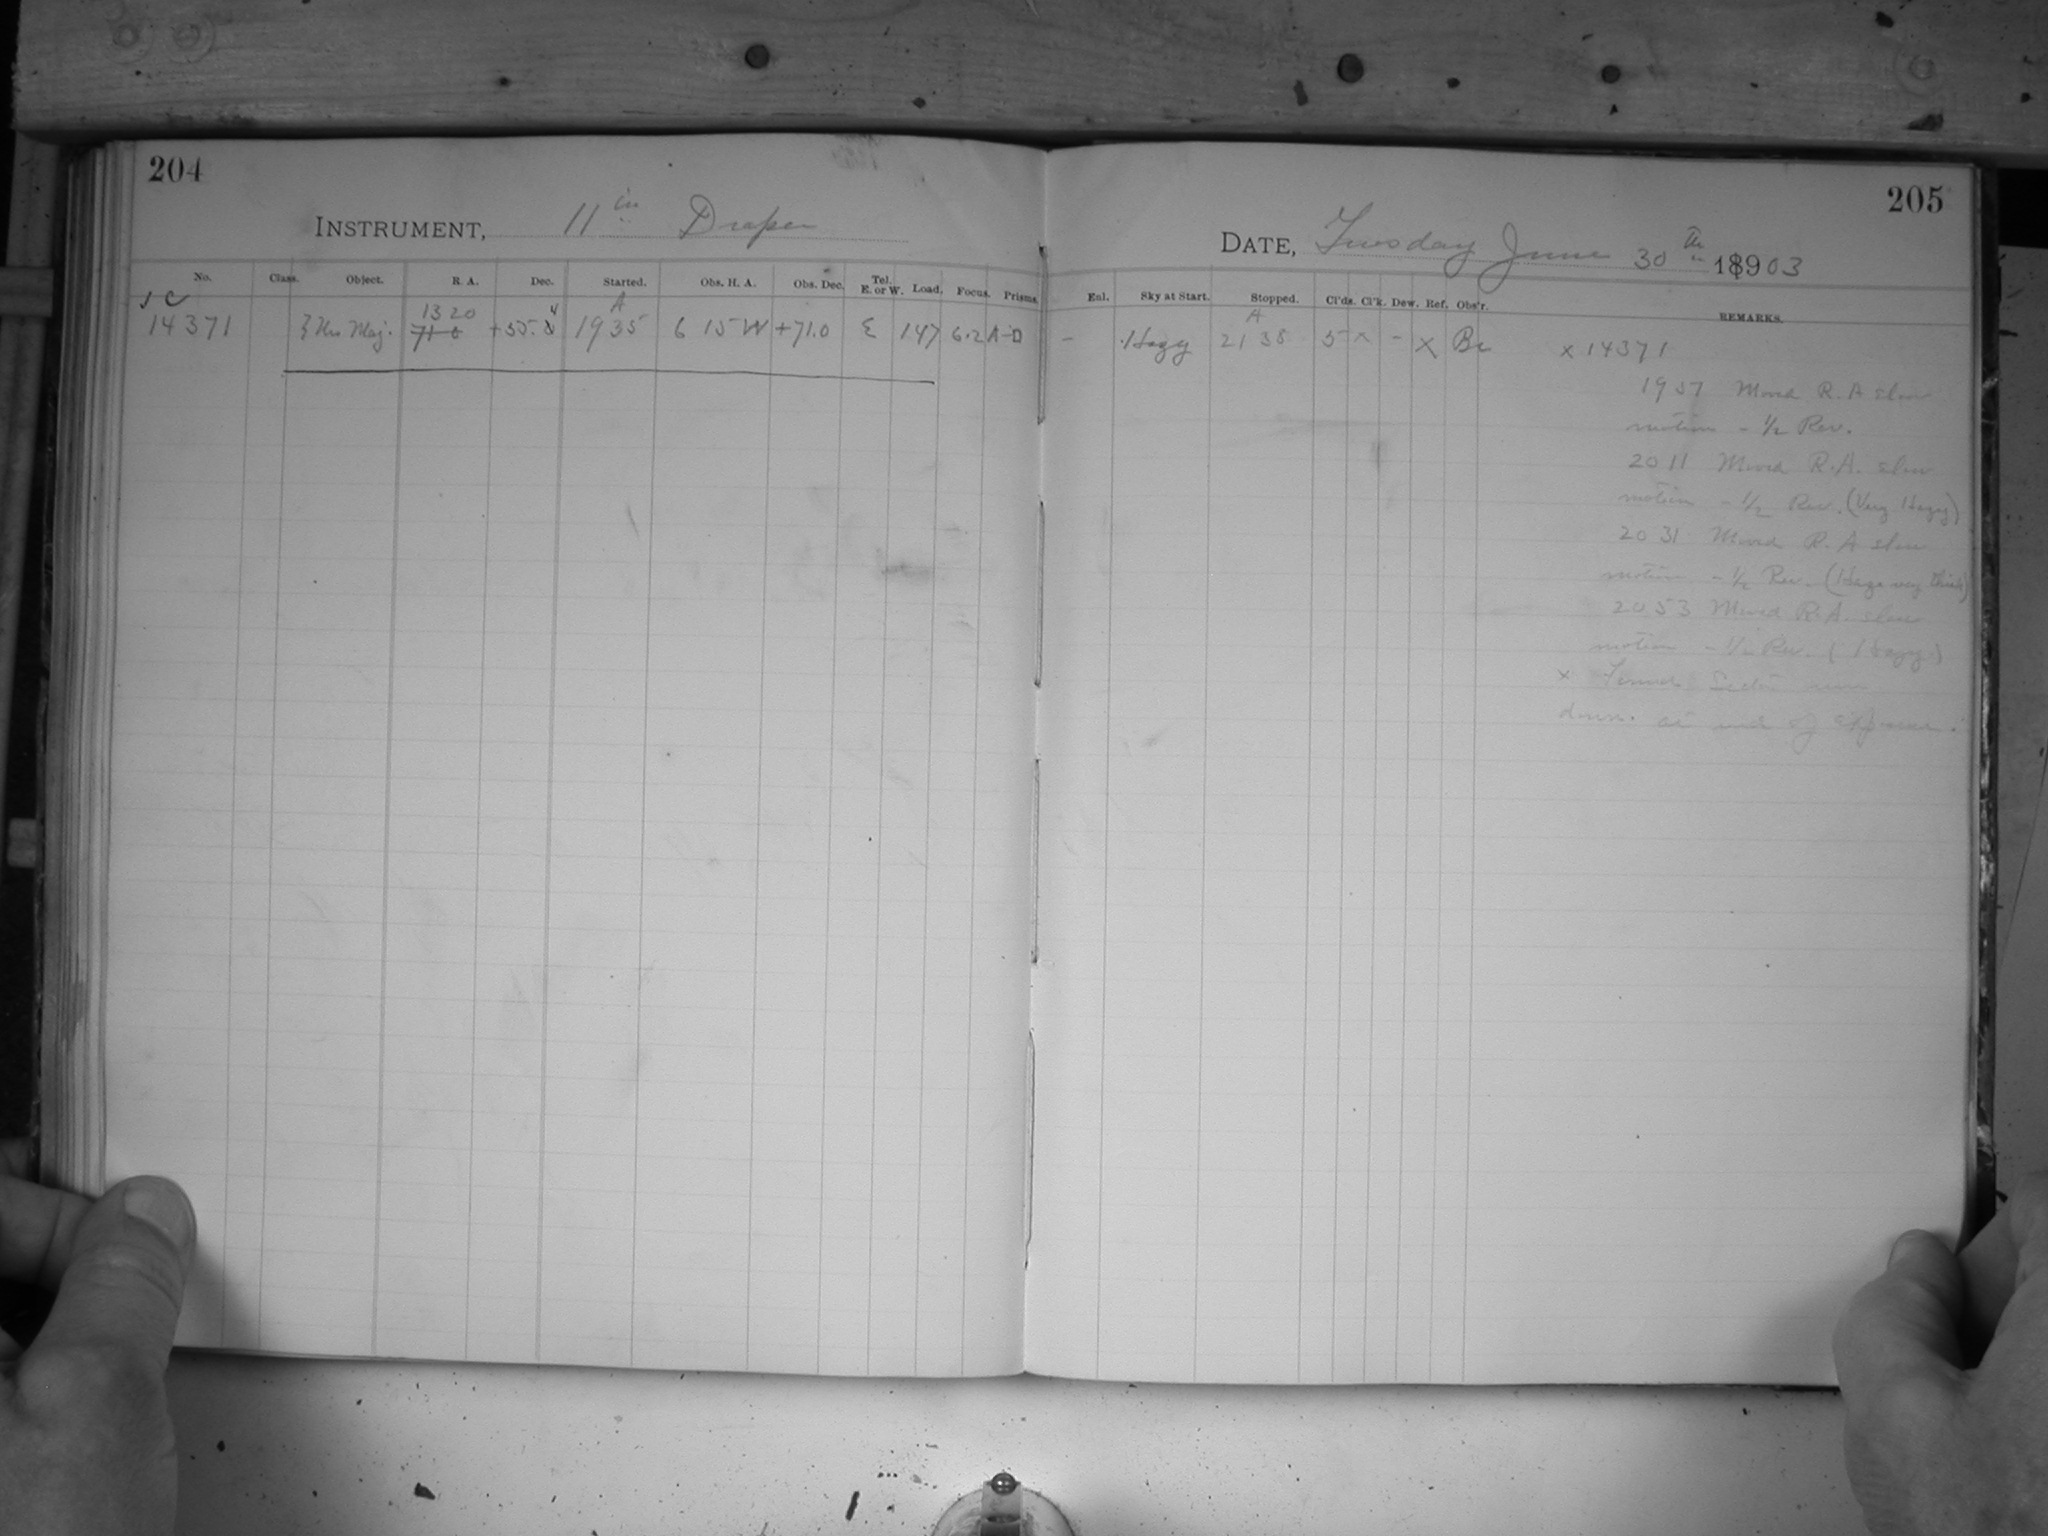 204
INSTRUMENT, 11 in Draper
No. Class. Object. R. A. Dec. Started. Obs. H. A. Obs. Dec. Tel. E. or W. Load. Focus. Prisms.
1320 4 A
14371 ζ Urs Maj. 71 0 +55.8 1935 6 15 W +71.0 E 147 6.2 A-D
205
DATE, Tuesday June 30 th 18903
Enl. Sky at Start. Stopped. Cl'ds. Cl'k. Dew. Ref. Obs'r. REMARKS.
A
- Hazy 21 38 5 ^ - X Be x 14371
1957 Moved R.A slow
motion - 1/2 Rev.
2011 Moved R.A. slow
motion - 1/2 Rev. (Very Hazy)
2031 Moved R.A slow
motion - 1/2 Rev. (Haze very thick)
2053 Moved R.A. slow
motion - 1/2 Rev. (Hazy.)
x Found
down. at end of exposure.